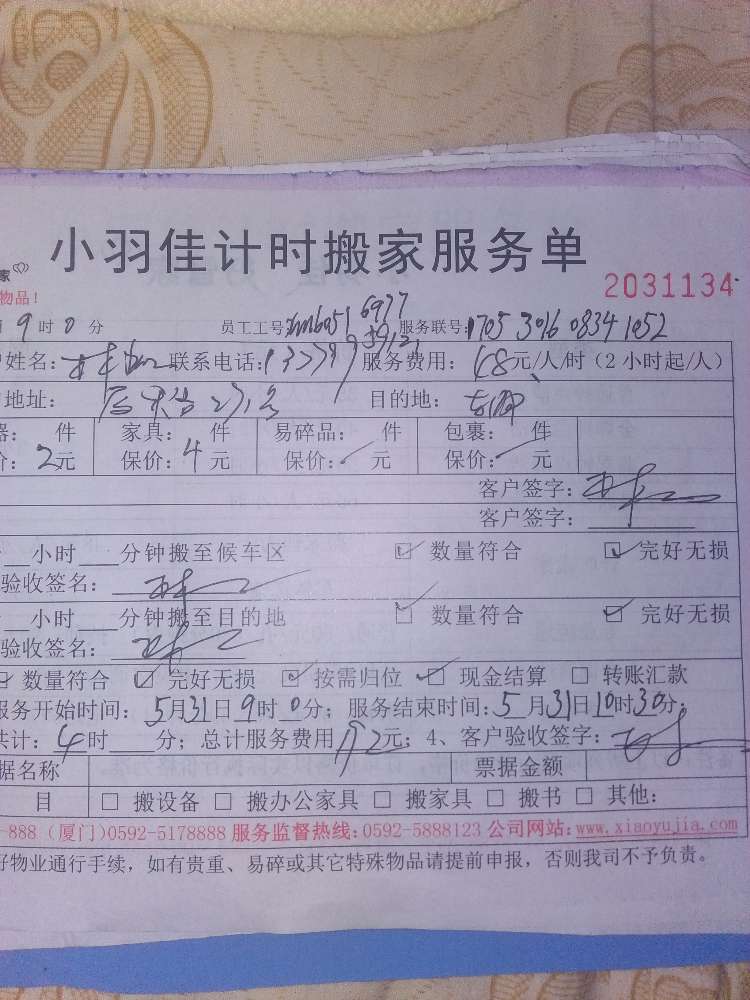 家
小羽佳计时搬家服务单
物品！
2031134
9时0分 员工工号: 6977 服务联号:1705 3016 0834 1052
姓名: 联系电话: 服务费用: 48元/人/时（2小时起/人）
地址: 目的地:
器: 件 家具: 件 易碎品: 件 包裹: 件
价: 2元 保价: 4元 保价: ✓ 元 保价: ✓ 元
客户签字:
客户签字:
小时 分钟搬至候车区 ☑ 数量符合 ☑ 完好无损
验收签名:
小时 分钟搬至目的地 ☑ 数量符合 ☑ 完好无损
验收签名:
☑ 数量符合 ☑ 完好无损 ☑ 按需归位 ☑ 现金结算 □ 转账汇款
服务开始时间: 5月31日9时0分; 服务结束时间: 5月31日10时30分;
共计: 4时 分; 总计服务费用192元; 4、客户验收签字:
据名称 票据金额
目 □ 搬设备 □ 搬办公家具 □ 搬家具 □ 搬书 □ 其他:
-888（厦门）0592-5178888 服务监督热线:0592-5888123 公司网站:www.xiaoyujia.com
好物业通行手续，如有贵重、易碎或其它特殊物品请提前申报，否则我司不予负责。